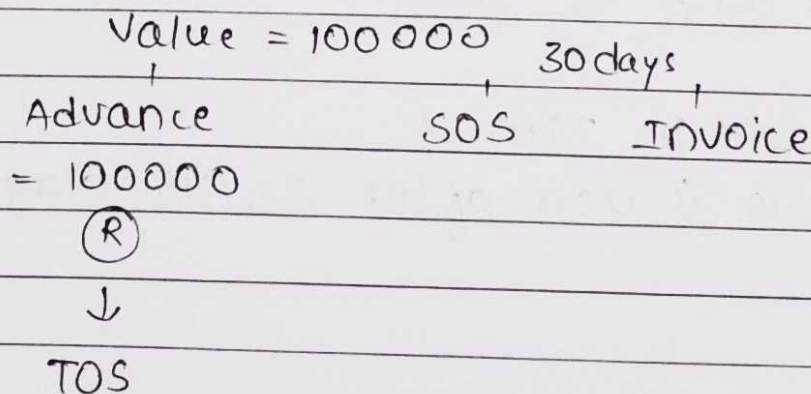 Value = 100000 30 days
Advance SOS Invoice
= 100000
R
↓
TOS